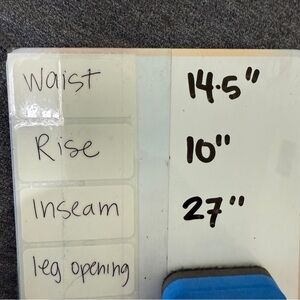 Waist 14.5"
Rise 10"
Inseam 27"
leg opening